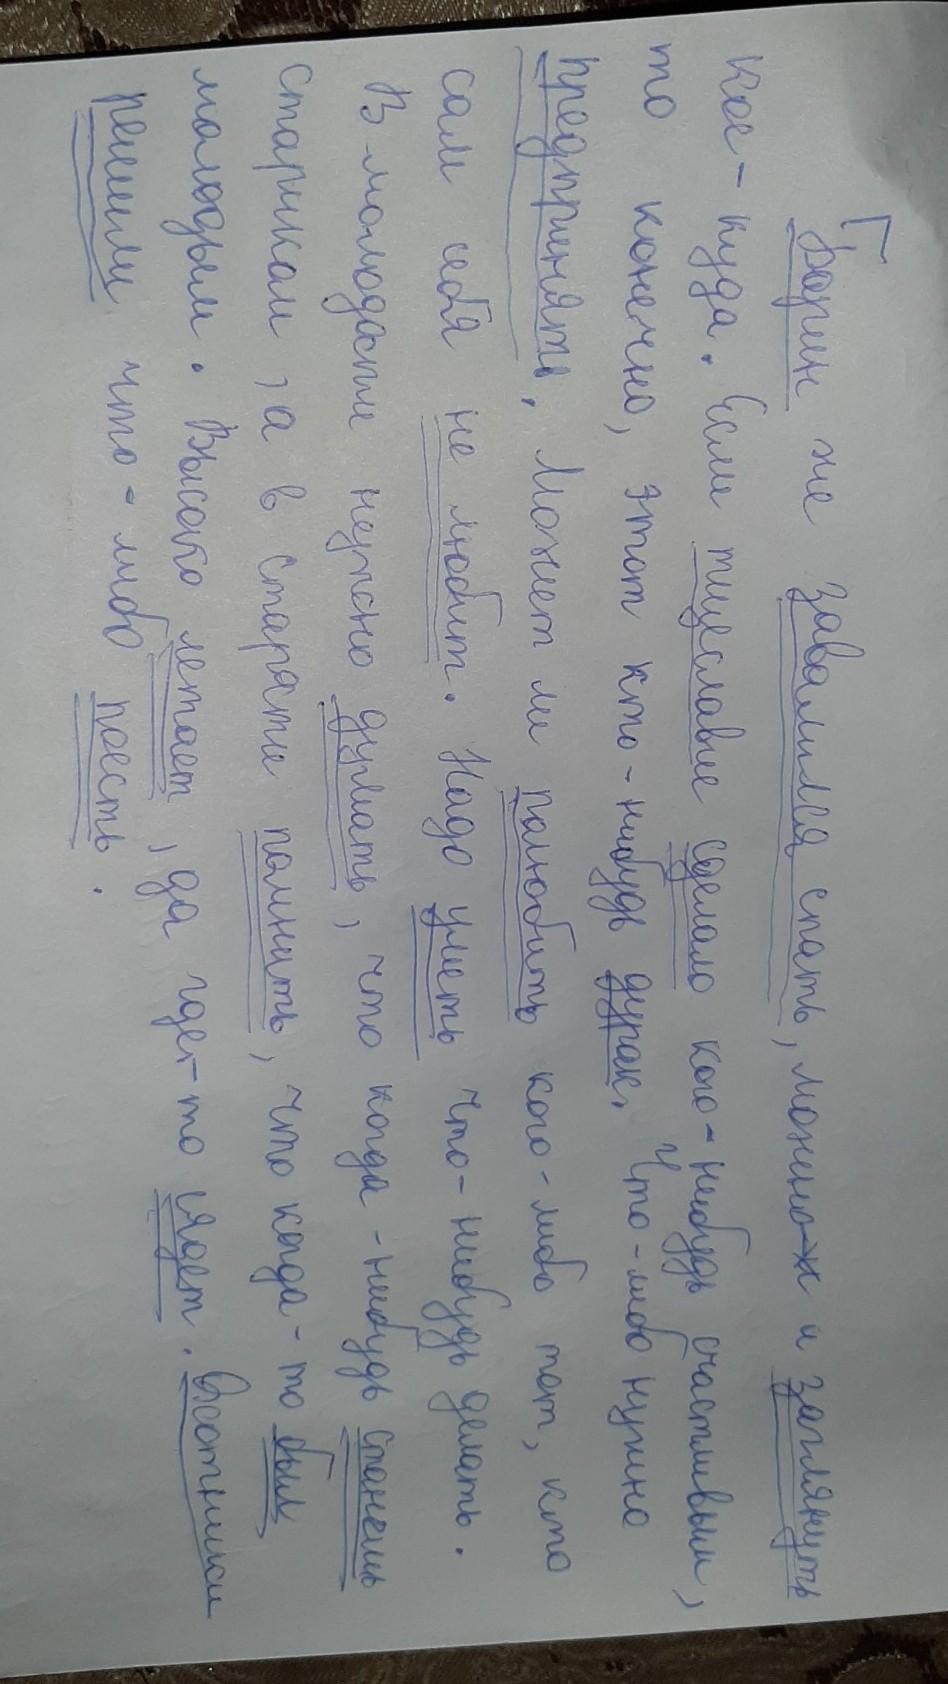 Барин же завалился спать, можно-ж и заглянуть
кое-куда. Если тщеславие сделало кого-нибудь счастливым,
то конечно, этот кто-нибудь дурак. Что-либо нужно
предпринять. Может ли полюбить кого-либо тот, кто
сам себя не любит. Надо уметь что-нибудь делать.
В молодости нужно думать, что когда-нибудь станешь
стариком, а в старости помнить, что когда-то был
молодым. Высоко летает, да где-то сядет. Охотники
решили что-либо поесть.